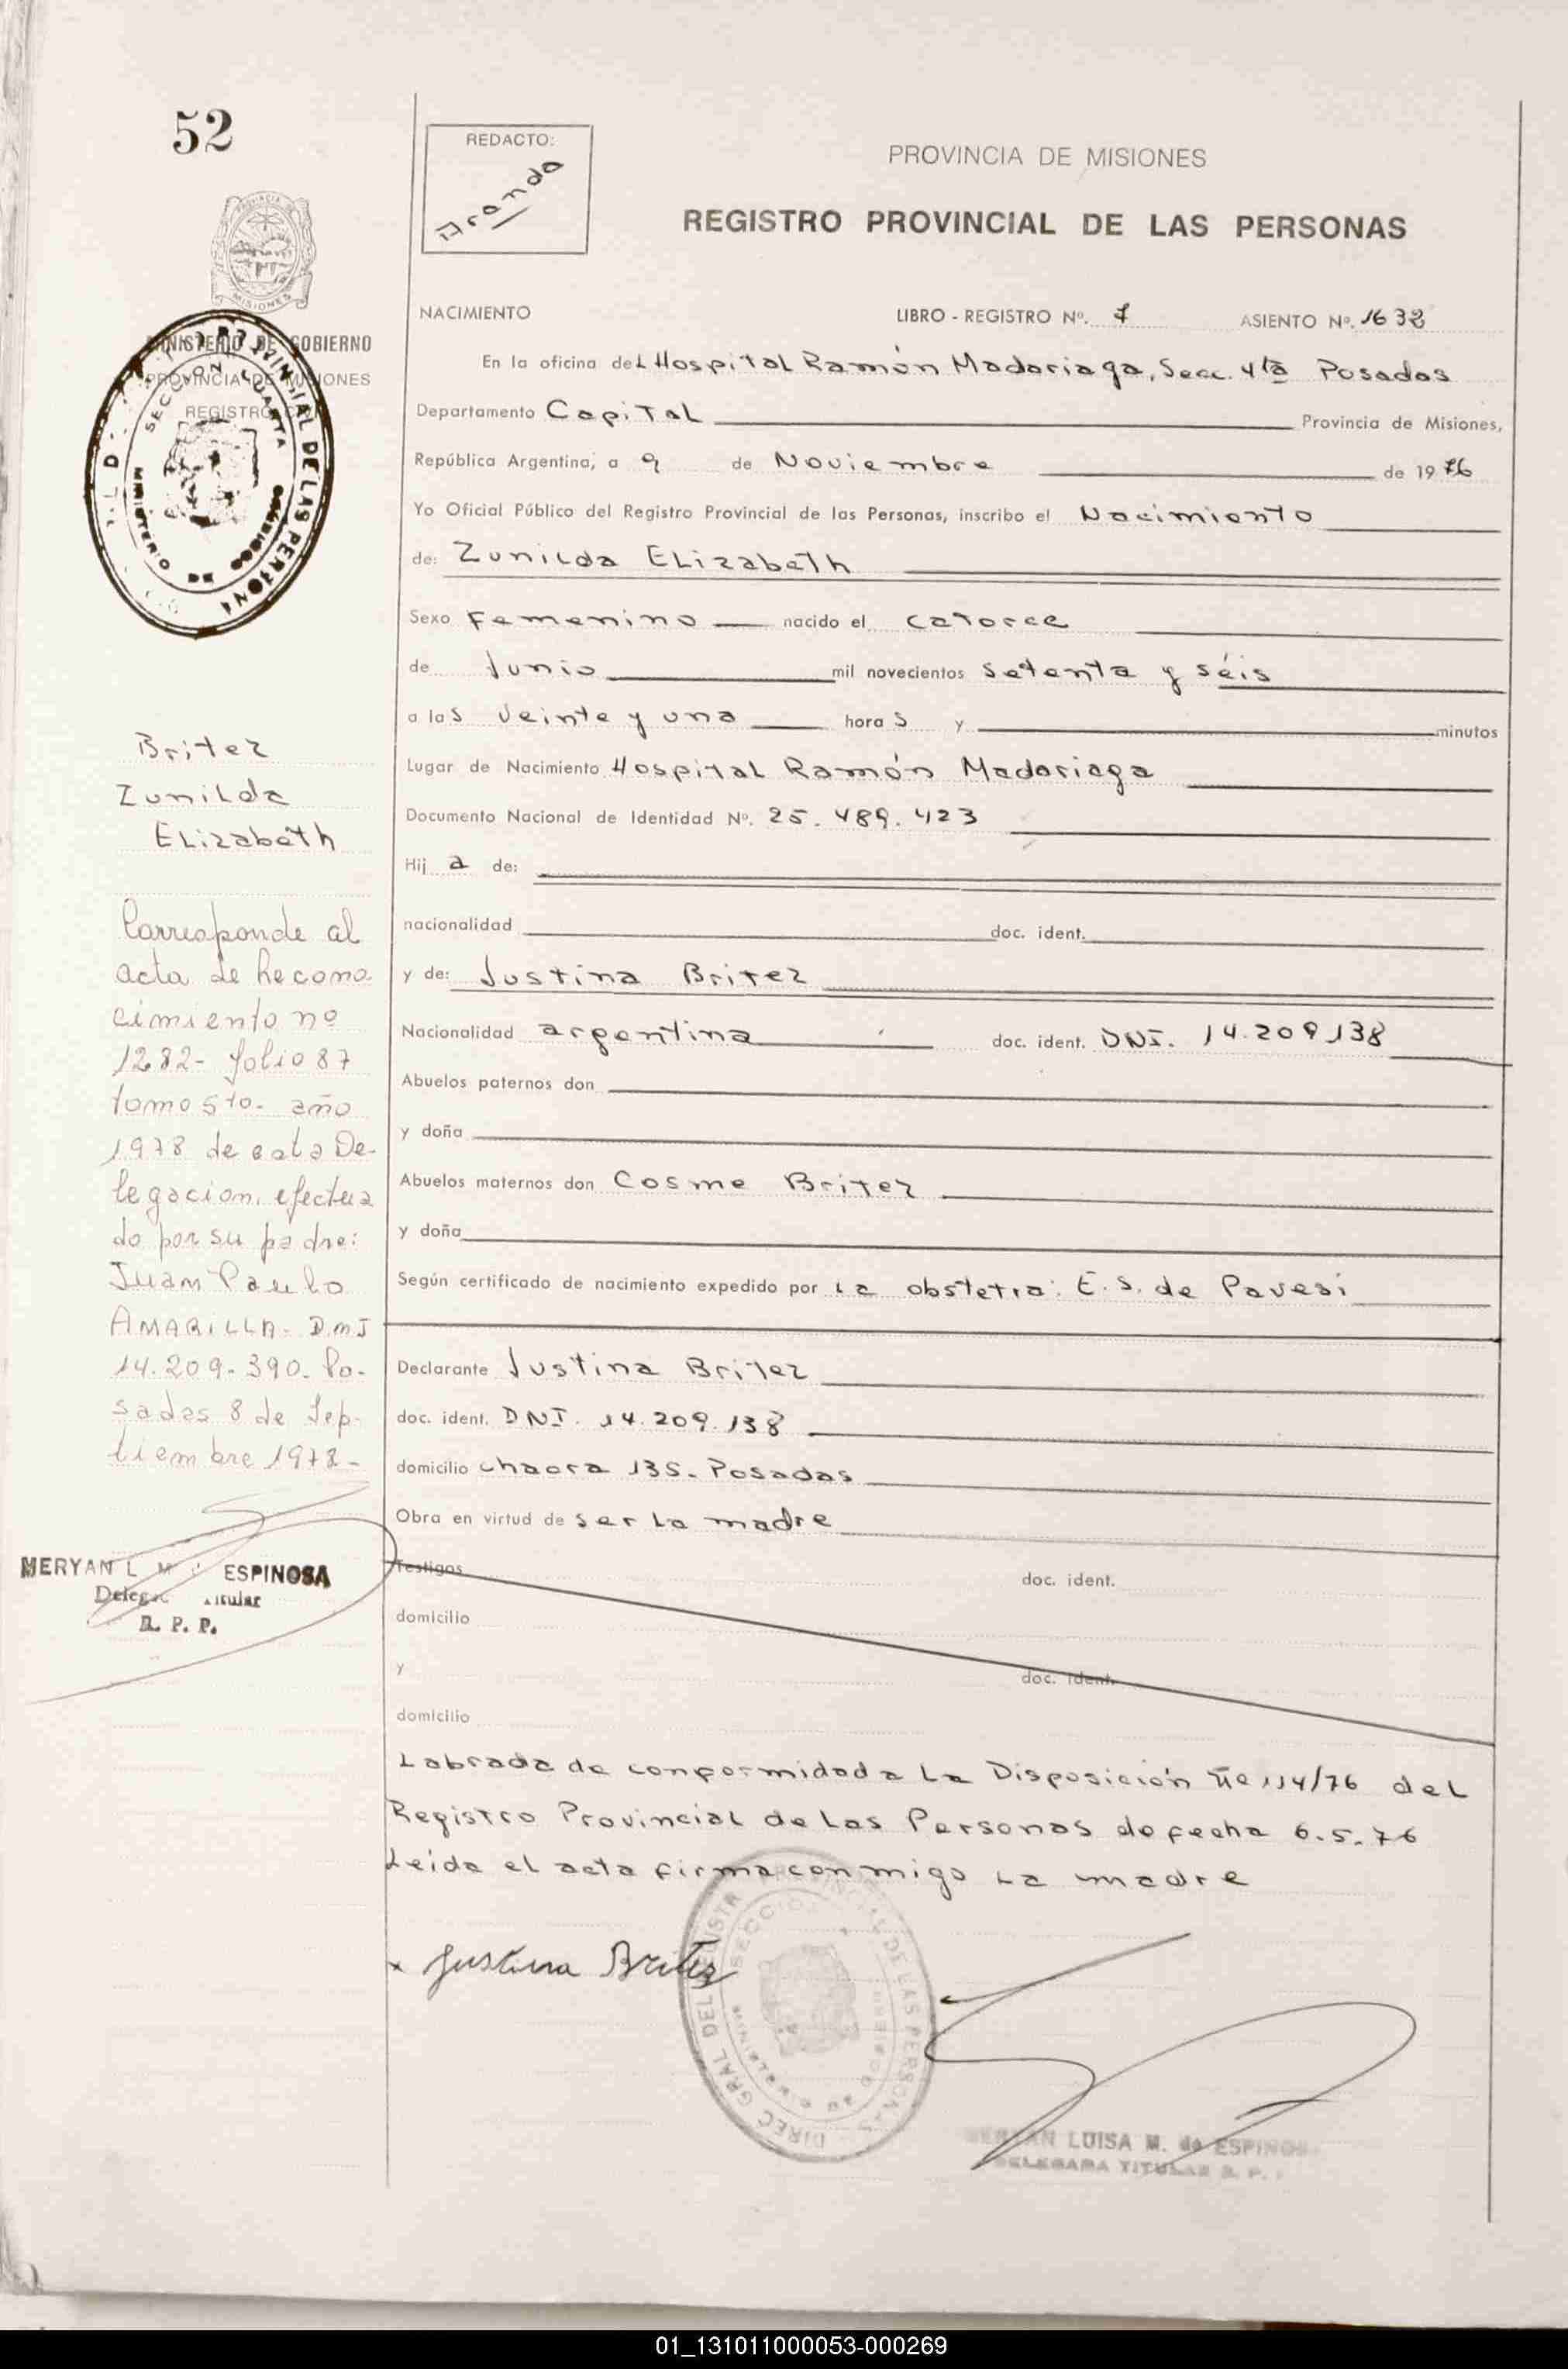 52
REDACTO:
Aranda
PROVINCIA DE MISIONES
REGISTRO PROVINCIAL DE LAS PERSONAS
PROVINCIA DE
MISIONES
MINISTERIO DE GOBIERNO
PROVINCIA DE MISIONES
REGISTRO
SECCION CUARTA
NACIMIENTO LIBRO - REGISTRO Nº. 7 ASIENTO Nº. 1632
En la oficina del Hospital Ramón Madariaga, Secc. 4ta Posadas
Departamento Capital Provincia de Misiones,
República Argentina, a 9 de Noviembre de 1976
Yo Oficial Público del Registro Provincial de las Personas, inscribo el Nacimiento
de: Zunilda Elizabeth
Sexo Femenino nacido el catorce
de Junio mil novecientos setenta y séis
a las veinte y una horas y minutos
Lugar de Nacimiento Hospital Ramón Madariaga
Documento Nacional de Identidad Nº. 25.489.423
Hija de:
nacionalidad doc. ident.
y de: Justina Britez
Nacionalidad argentina doc. ident. DNI. 14.209.138
Abuelos paternos don
y doña
Abuelos maternos don Cosme Britez
y doña
Según certificado de nacimiento expedido por la obstetra: E. S. de Pavesi
Declarante Justina Britez
doc. ident. DNI. 14.209.138
domicilio chacra 135. Posadas
Obra en virtud de ser la madre
Testigos doc. ident.
domicilio
y doc. ident.
domicilio
Labrada de conformidad a la Disposición Nº 114/76 del
Registro Provincial de las Personas de fecha 6.5.76
Leida el acta firma conmigo la madre
x Justina Britez
DIREC GRAL DEL REGISTRO PROVINCIAL DE LAS PERSONAS
LUISA M. de ESPINOSA
DELEGADA TITULAR R. P. P.
Britez
Zunilda
Elizabeth
Corresponde al
acta de recono
cimiento nº
1282- folio 87
tomo 5to- año
1978 de esta De-
legacion, efectua
do por su padre:
Juan Paulo
AMARILLA- DNI
14.209-390- Po-
sadas 8 de Sep-
tiembre 1978-
MERYAN L M ESPINOSA
Delegada Titular
R. P. P.
01_131011000053-000269